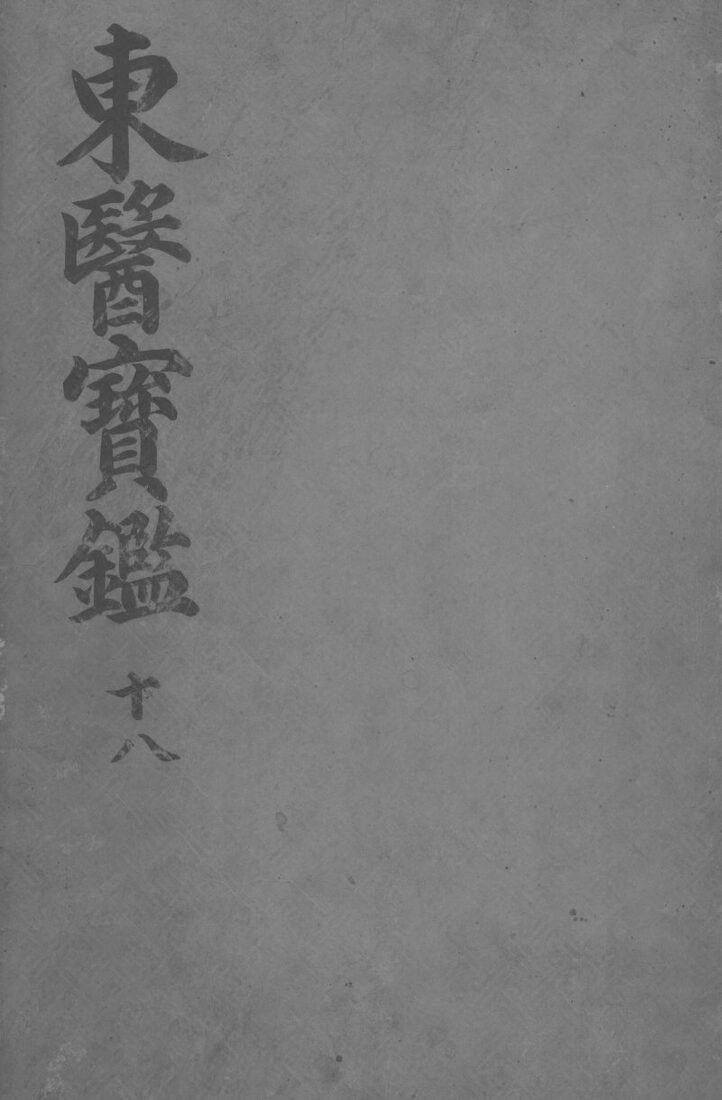 東醫寶鑑
十八